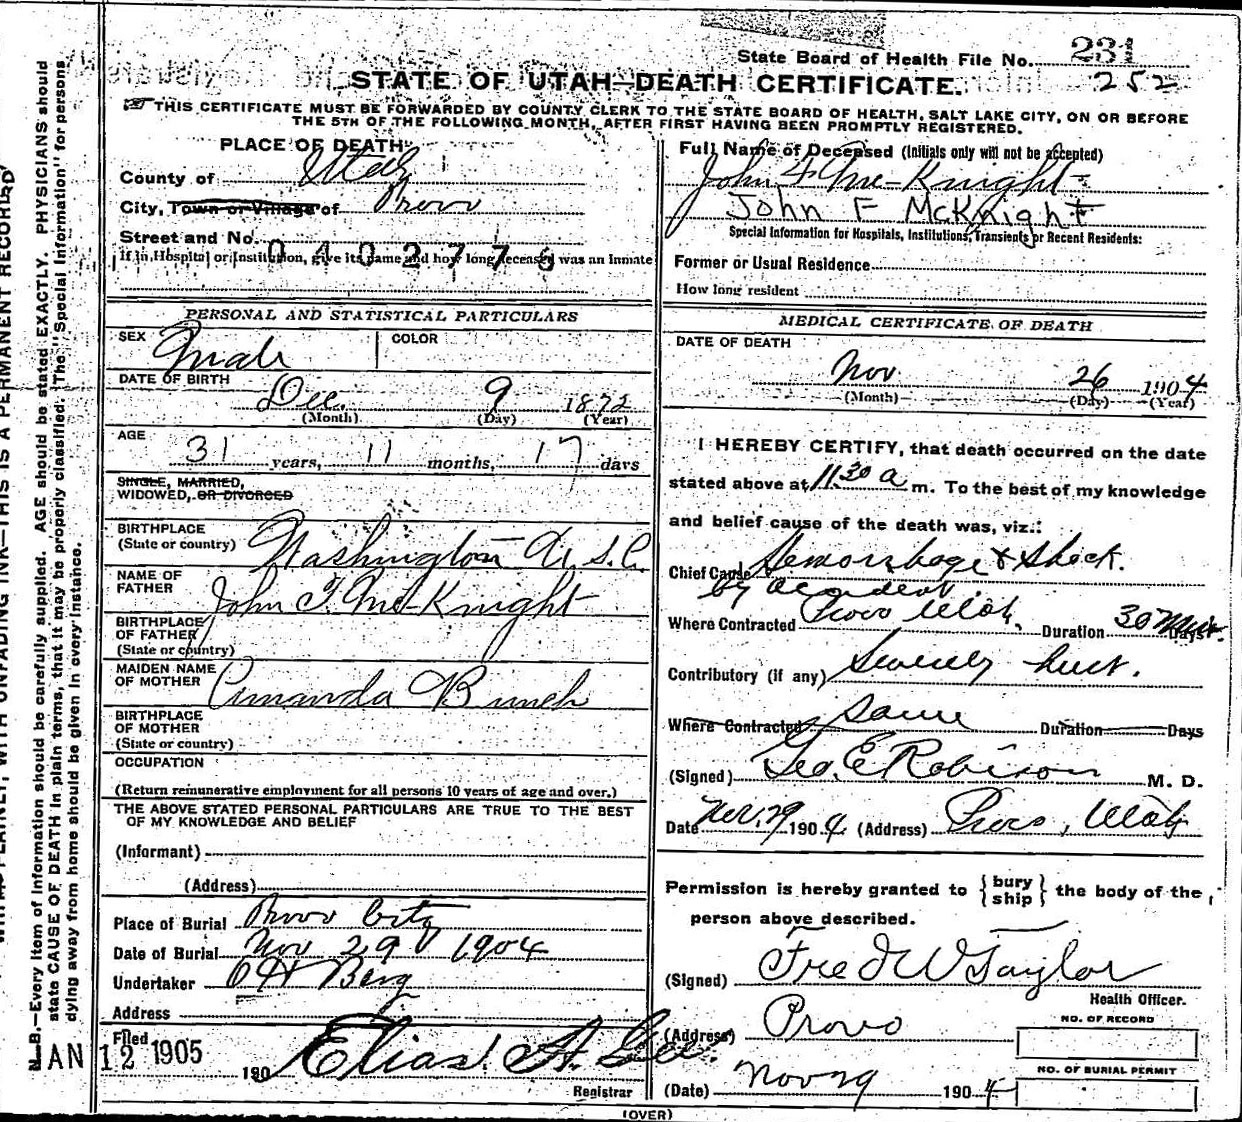 State Board of Health File No. 231
252
STATE OF UTAH—DEATH CERTIFICATE.
THIS CERTIFICATE MUST BE FORWARDED BY COUNTY CLERK TO THE STATE BOARD OF HEALTH, SALT LAKE CITY, ON OR BEFORE
THE 5TH OF THE FOLLOWING MONTH, AFTER FIRST HAVING BEEN PROMPTLY REGISTERED.
PLACE OF DEATH
County of Utah
City, Town or Village of Provo
Street and No.
0402776
If in Hospital or Institution, give its name and how long deceased was an Inmate
PERSONAL AND STATISTICAL PARTICULARS
SEX Male COLOR
DATE OF BIRTH
Dec. 9 1872
(Month) (Day) (Year)
AGE
31 years, 11 months, 17 days
SINGLE, MARRIED,
WIDOWED, OR DIVORCED
BIRTHPLACE
(State or country) Washington
NAME OF
FATHER John F. Mc-Knight
BIRTHPLACE
OF FATHER
(State or country)
MAIDEN NAME
OF MOTHER Amanda Bunch
BIRTHPLACE
OF MOTHER
(State or country)
OCCUPATION
(Return remunerative employment for all persons 10 years of age and over.)
THE ABOVE STATED PERSONAL PARTICULARS ARE TRUE TO THE BEST
OF MY KNOWLEDGE AND BELIEF
(Informant)
(Address)
Place of Burial Provo City
Date of Burial Nov 29 1904
Undertaker O H Berg
Address
Filed
JAN 12 1905
190 Elias A. Gee.
Registrar
Full Name of Deceased (Initials only will not be accepted)
John F Mc-Knight
John F McKnight
Special Information for Hospitals, Institutions, Transients or Recent Residents:
Former or Usual Residence
How long resident
MEDICAL CERTIFICATE OF DEATH
DATE OF DEATH
Nov. 26 1904
(Month) (Day) (Year)
I HEREBY CERTIFY, that death occurred on the date
stated above at 11.30 a m. To the best of my knowledge
and belief cause of the death was, viz.:
Chief Cause Hemorrhage & Shock.
by accident.
Where Contracted Provo Utah. Duration 30 Days
Contributory (if any) Severely hurt.
Where Contracted Same Duration Days
(Signed) Geo. E Robison M. D.
Date Nov. 29 1904. (Address) Provo, Utah
Permission is hereby granted to {bury
ship} the body of the
person above described.
(Signed) Fred W Taylor
Health Officer.
(Address) Provo
NO. OF RECORD
NO. OF BURIAL PERMIT
(Date) Nov 29 1904
(OVER)
N. B.—Every item of Information should be carefully supplied. AGE should be stated EXACTLY. PHYSICIANS should
state CAUSE OF DEATH in plain terms, that it may be properly classified. The "Special Information" for persons
dying away from home should be given in every instance.
WITH UNFADING INK—THIS IS A PERMANENT RECORD